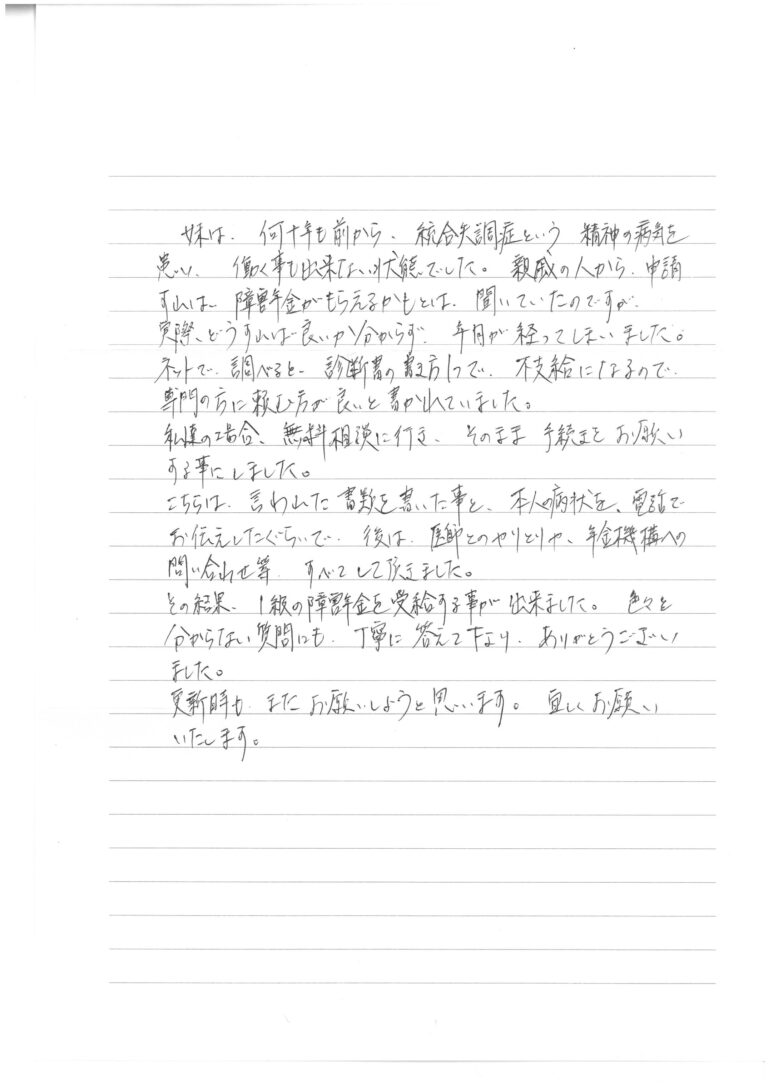 妹は、何十年も前から、統合失調症という 精神の病気を
患い、働く事も出来ない状態でした。親戚の人から、申請
すれば、障害年金がもらえるかもとは、聞いていたのですが、
実際、どうすれば良いか分からず、年月が経ってしまいました。
ネットで、調べると、診断書の書き方1つで、不支給になるので、
専門の方に頼む方が良いと書かれていました。
私達の場合、無料相談に行き、そのまま 手続きを お願い
する事にしました。
こちらは、言われた書類を書いた事と、本人の病状を、電話で
お伝えしたぐらいで、後は、医師とのやりとりや、年金機構への
問い合わせ等、すべてして頂きました。
その結果、1級の障害年金を受給する事が出来ました。色々と
分からない質問にも、丁寧に答えて下さり、ありがとうござい
ました。
更新時も、また お願いしようと思います。宜しくお願い
いたします。